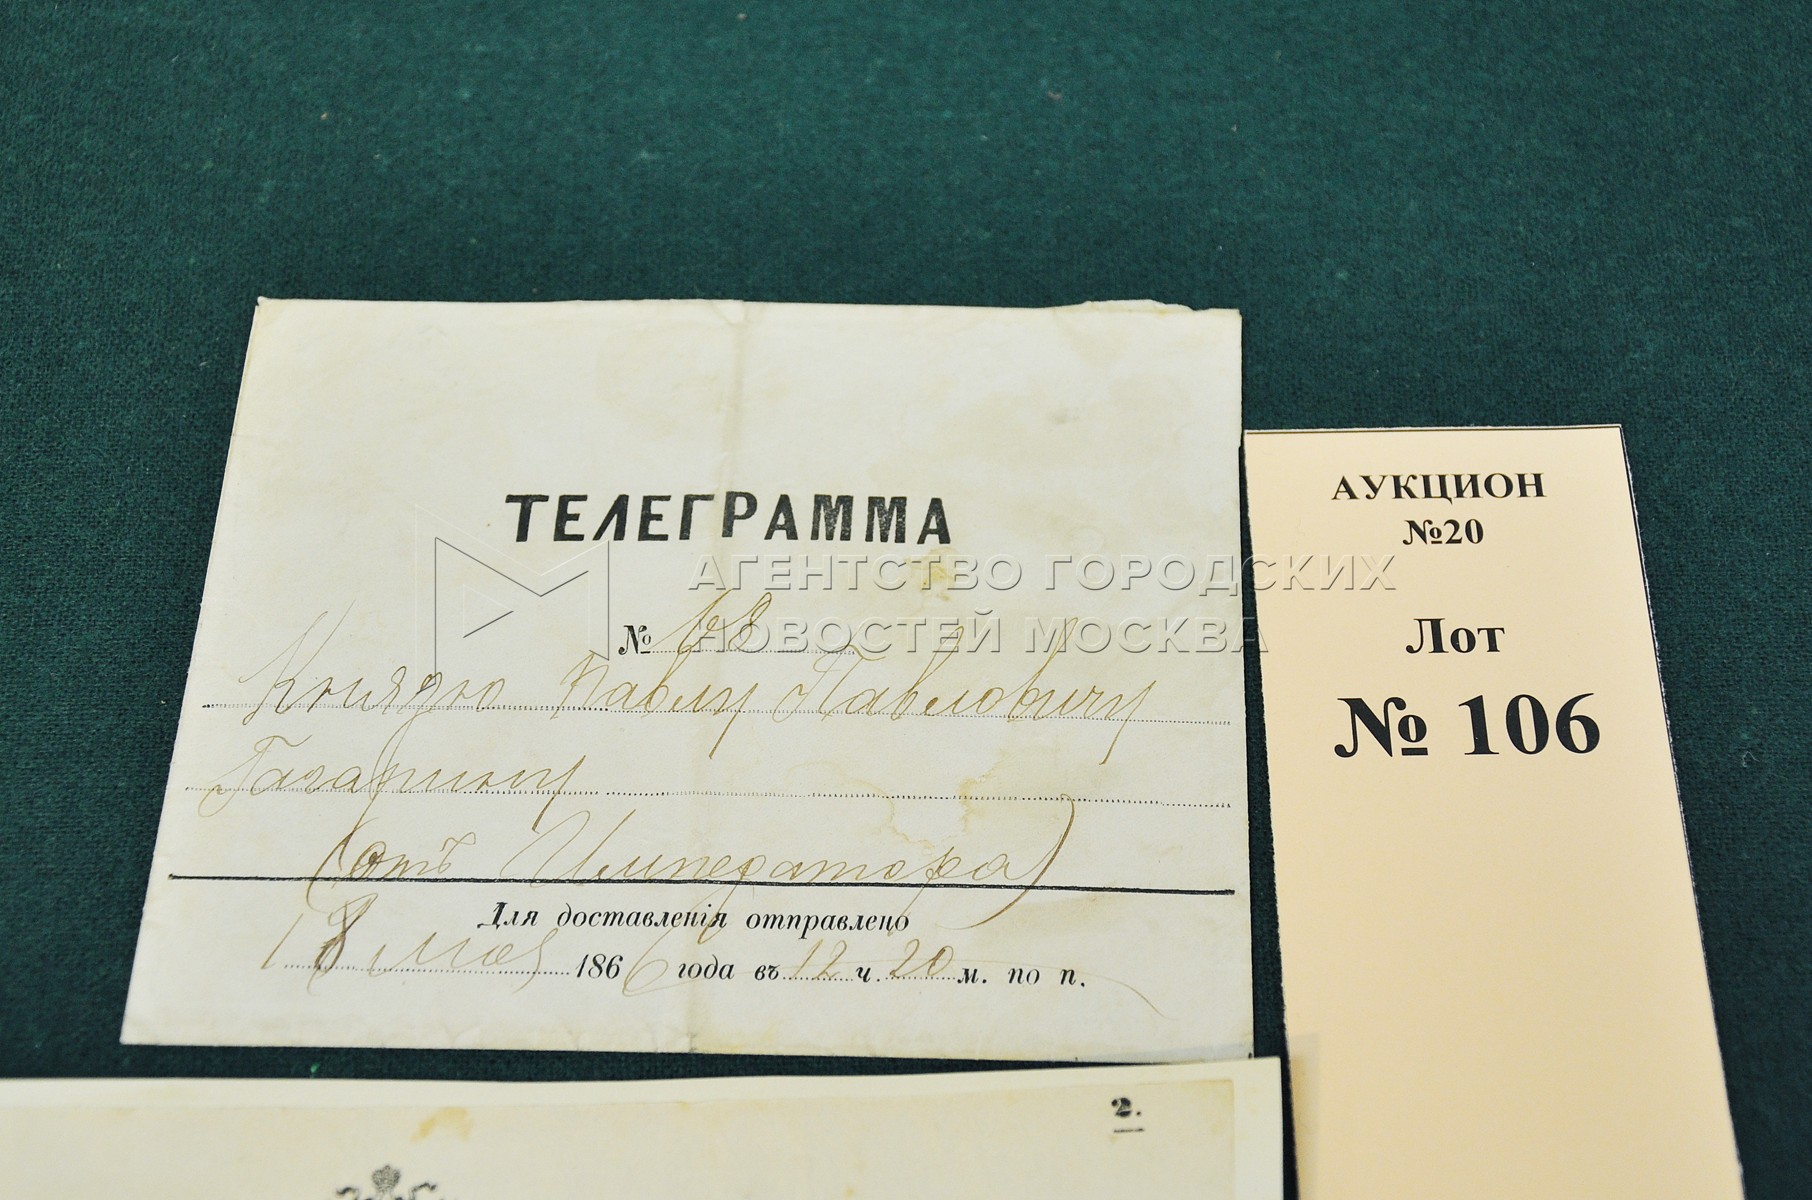 ТЕЛЕГРАММА
№ 68
Князю Павлу Павловичу
Гагарину
(отъ Императора)
Для доставленія отправлено
18 мая 1866 года въ 12 ч. 20 м. по п.
АУКЦИОН
№20
Лот
№ 106
АГЕНТСТВО ГОРОДСКИХ
НОВОСТЕЙ МОСКВА
2.